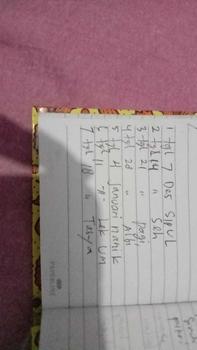 1 tgl 7 Des SIPUL
2 tgl 14 " Seh
3 tgl 21 " pagi
4 tgl 28 " Albi
5 tgl 4 Januari manik
6 tgl 11 -"- Lek UM
7 tgl 18 " Tasya
PAPERLINE